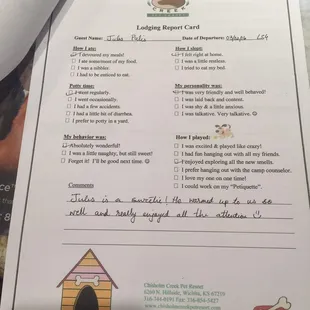 Lodging Report Card
Guest Name: Jules Date of Departure:
How I ate: How I slept:
I devoured my meals! I felt right at home.
I ate some/most of my food. I was a little restless.
I was a nibbler. I tried to eat my bed.
I had to be enticed to eat.
Potty time: My personality was:
I went regularly. I was very friendly and well behaved!
I went occasionally. I was laid back and content.
I had a few accidents. I was shy & a little anxious.
I had a little bit of diarrhea. I was talkative. Very talkative. ☺
I prefer to potty in a yard.
My behavior was: How I played:
Absolutely wonderful! I was excited & played like crazy!
I was a little naughty, but still sweet! I had fun hanging out with all my friends.
Forget it! I'll be good next time. ☺ I enjoyed exploring all the new smells.
I prefer hanging out with the camp counselor.
I love my one on one time!
I could work on my "Petiquette".
Comments
Jules is a sweetie! He warmed up to us so
well and really enjoyed all the attention ☺
Chisholm Creek Pet Resort
Wichita, KS 67219